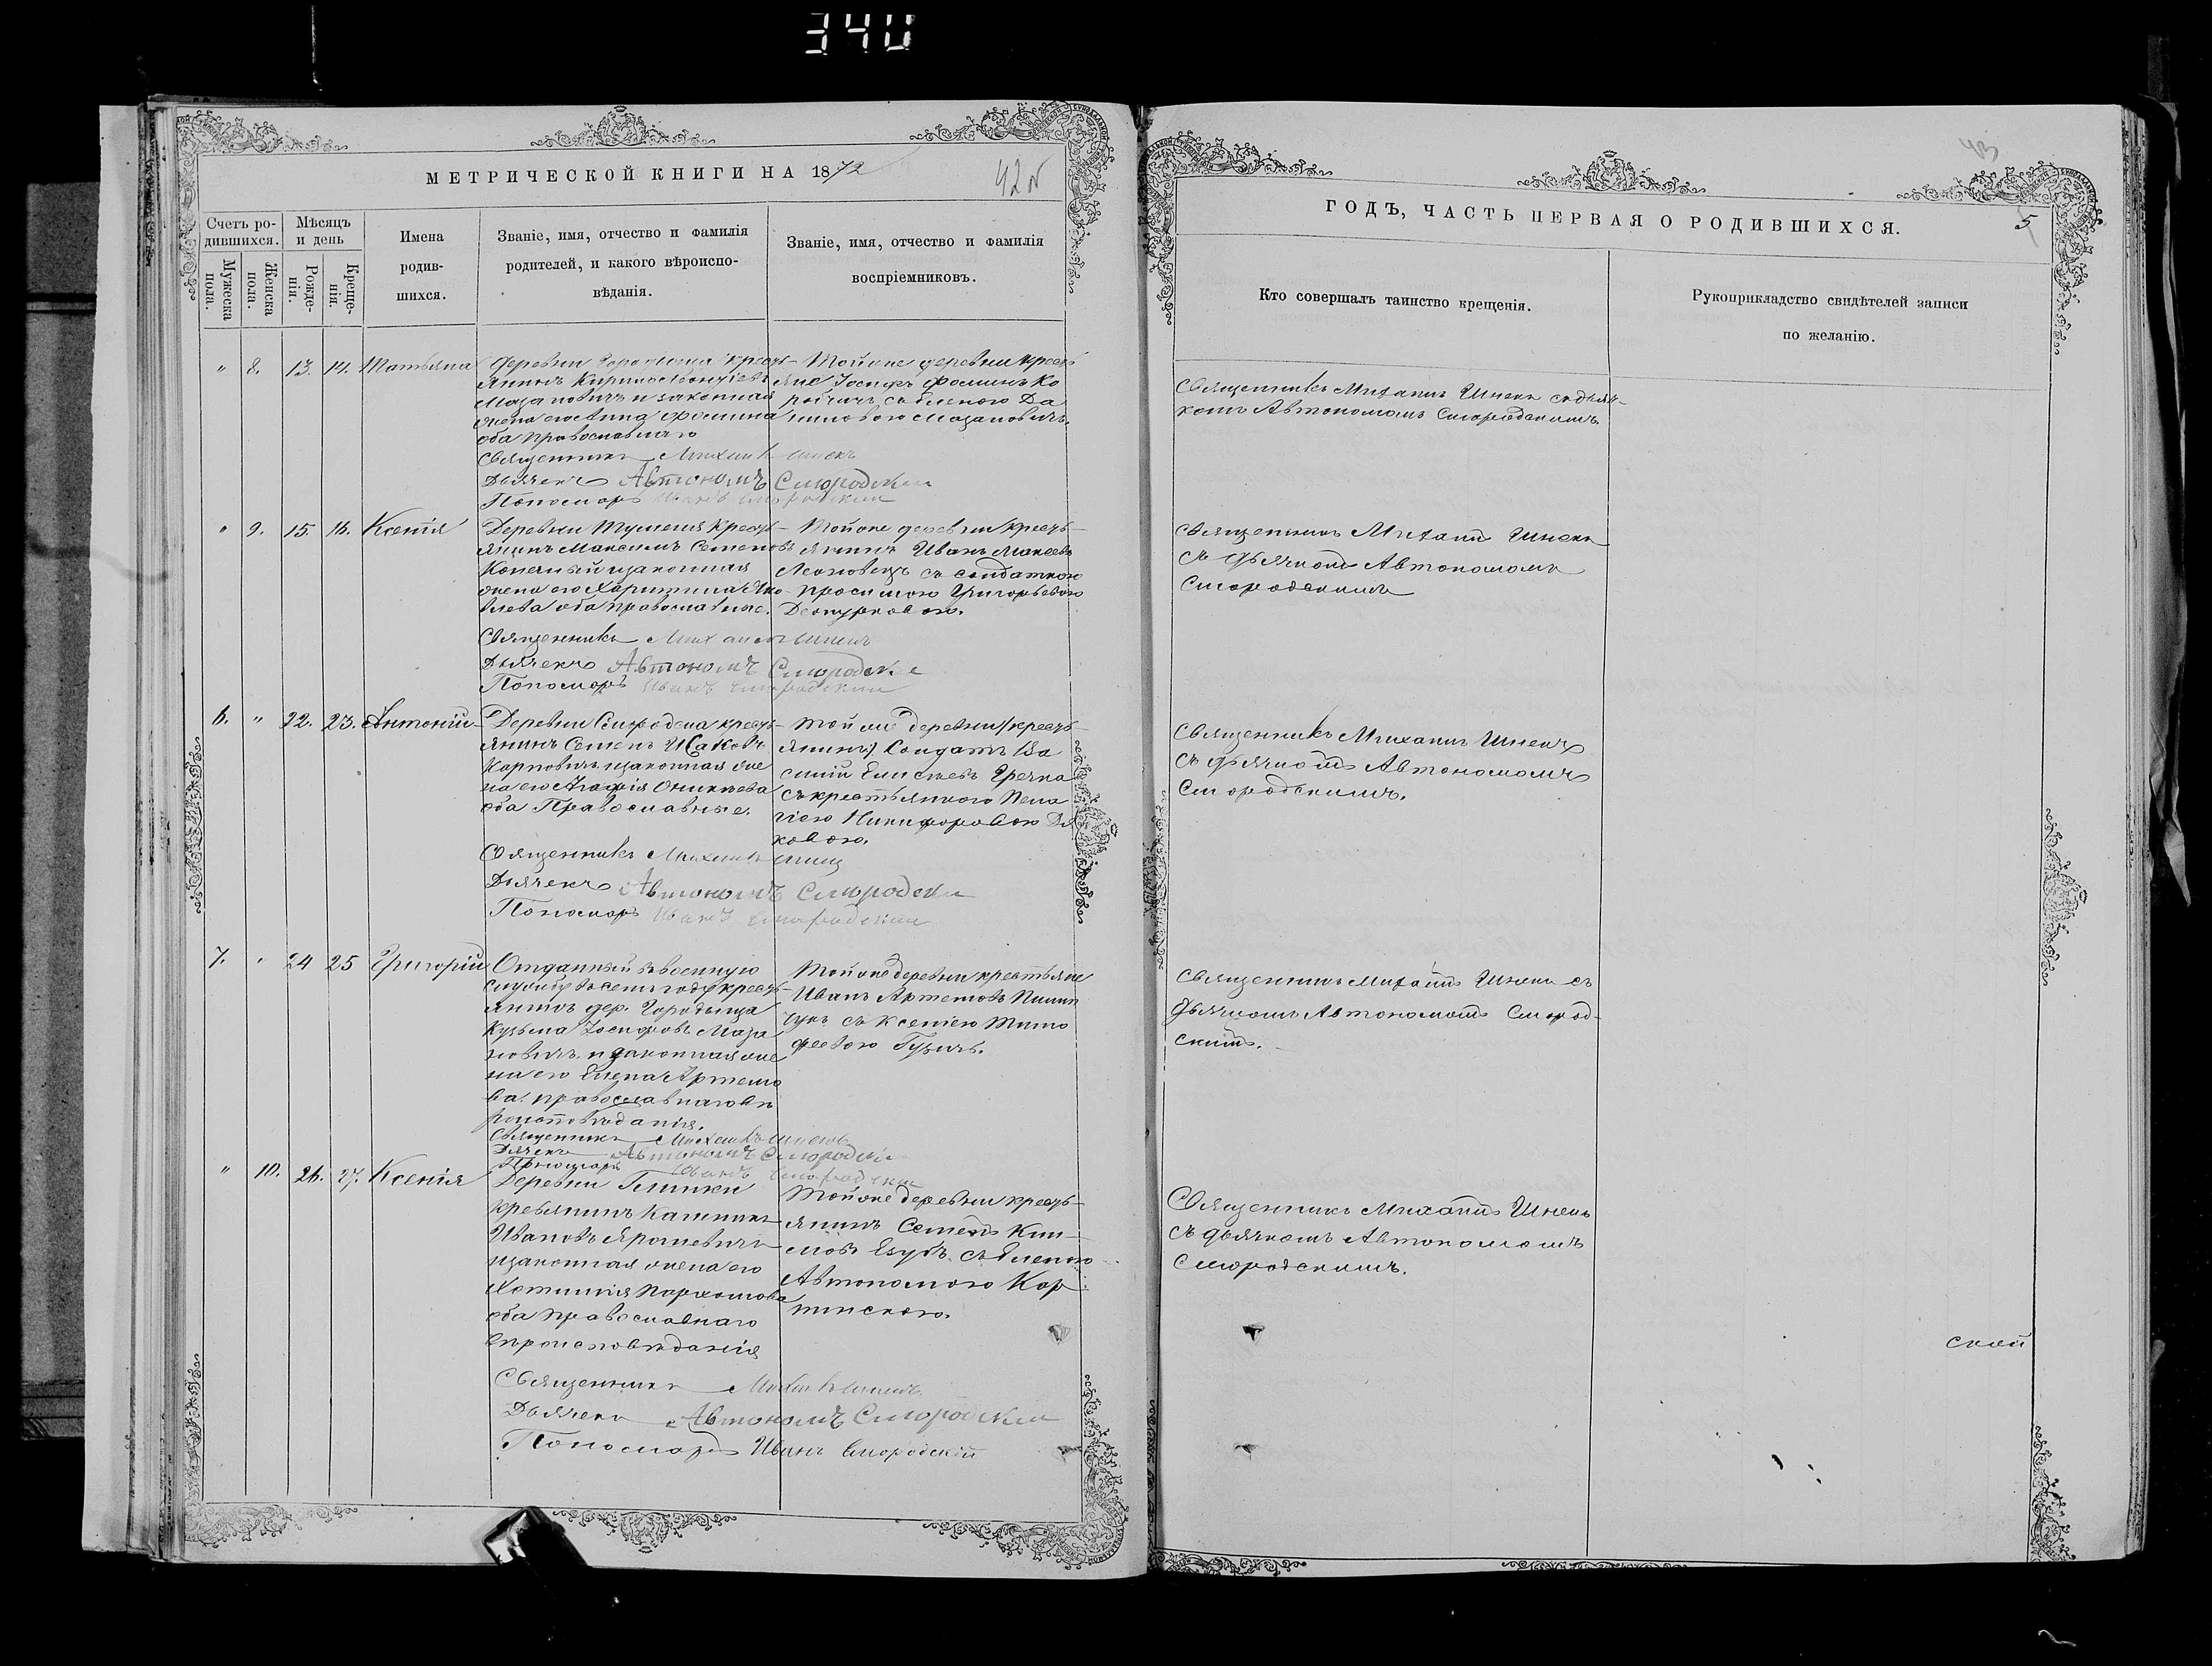 340
МЕТРИЧЕСКОЙ КНИГИ НА 1872
42 об
Счетъ ро-
дившихся.
Мужеска
пола.
Женска
пола.
Мѣсяцъ
и день
Рожде-
нія.
Креще-
нія.
Имена
родив-
шихся.
Званіе, имя, отчество и фамилія
родителей, и какого вѣроиспо-
вѣданія.
Званіе, имя, отчество и фамилія
воспріемниковъ.
" 8. 13. 14. Татьяна
Деревни Городища крестъ-
янинъ Кирило Леонтіевъ
Мазановичъ и законная
жена его Анна Фомина
оба православнаго
Той же деревни кресть
яне Іосифъ Фоминъ Ко
ротичъ съ Еленою Да
ниловою Мазановичъ.
Священникъ Михаилъ Шнекъ
Дьячекъ Автономъ Смородскій
Пономарь Иванъ Смородскій
" 9. 15. 16. Ксенія
Деревни Тушемля крестъ-
янинъ Максимъ Семеновъ
изаконная
жена его Харитина Яко-
влева оба православные.
Той же деревни кресть-
янинъ Иванъ Мокеевъ
съ солдаткою
Григорьевою
Священникъ Михаилъ Шнекъ
Дьячекъ Автономъ Смородскій
Пономарь Иванъ Смородскій
6. " 22. 23. Антоній
Деревни крестъ-
янинъ Семенъ Исаковъ
Карповичъ изаконная же
на его Агафія Оникѣева
оба Православные.
Той же деревни (кресть-
янинъ) Солдатъ Ва
силій Елисѣевъ Гречка
съ крестьянкою Пела
гіею Никифоровою Дя
ковою.
Священникъ Михаилъ Шнекъ
Дьячекъ Автономъ Смородскій
Пономарь Иванъ Смородскій
7. " 24 25 Григорій
Отданный въ военную
службу въ семъ году кресть-
янинъ дер. Городища
Кузьма Іосифовъ Маза
новичъ и законная же
на его Елена Артемо
ва. православнаго вѣ
роисповѣданія.
Той же деревни крестьяне
Иванъ Артемовъ Пилип
чукъ съ Ксеніею Тимо
феевою Гузичъ.
Священникъ Михаилъ Шнекъ
Дьячекъ Автономъ Смородскій
Пономарь Иванъ Смородскій
" 10. 26. 27. Ксенія
Деревни Глинки
кресьянинъ Калиникъ
Ивановъ Ярошевичъ
изаконная жена его
Хотинія Пархомова
оба православнаго
вѣроисповѣданія
Той же деревни кресть-
янинъ Семенъ Кли-
мовъ съ Еленою
Автономою Кор
тинскою.
Священникъ Михаилъ Шнекъ
Дьячекъ Автономъ Смородскій
Пономарь Иванъ Смородскій
43
5
ГОДЪ, ЧАСТЬ ПЕРВАЯ О РОДИВШИХСЯ.
Кто совершалъ таинство крещенія.
Рукоприкладство свидѣтелей записи
по желанію.
Священникъ Михаилъ Шнекъ съ дьяч-
комъ Автономомъ Смородскимъ.
Священникъ Михаилъ Шнекъ
съ дьячкомъ Автономомъ
Смородскимъ
Священникъ Михаилъ Шнекъ
съ дьячкомъ Автономомъ
Смородскимъ.
Священникъ Михаилъ Шнекъ съ
дьячкомъ Автономомъ Смород-
скимъ.
Священникъ Михаилъ Шнекъ
съ дьячкомъ Автономомъ
Смородскимъ.
ской